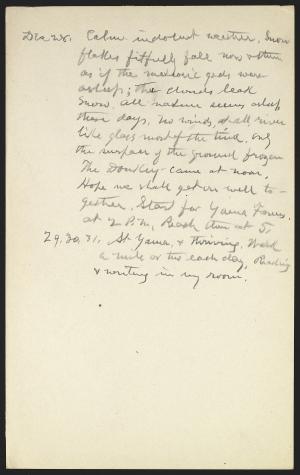 Dec 28. Calm indolent weather. Snow
flakes fitfully fall now & then
as if the meteoric gods were
asleep; the clouds leak
snow. All nature seems asleep
these days, no winds, river
like glass most of the time. Only
the surface of the ground frozen
The Donkey came at noon.
Hope we shall get on well to-
gether. Start for Yama Farms.
at 2 P.M. Reach there at 5.
29, 30, 31. At Yama, & thriving. Walk
a mile or two each day, Reading
& writing in my room.